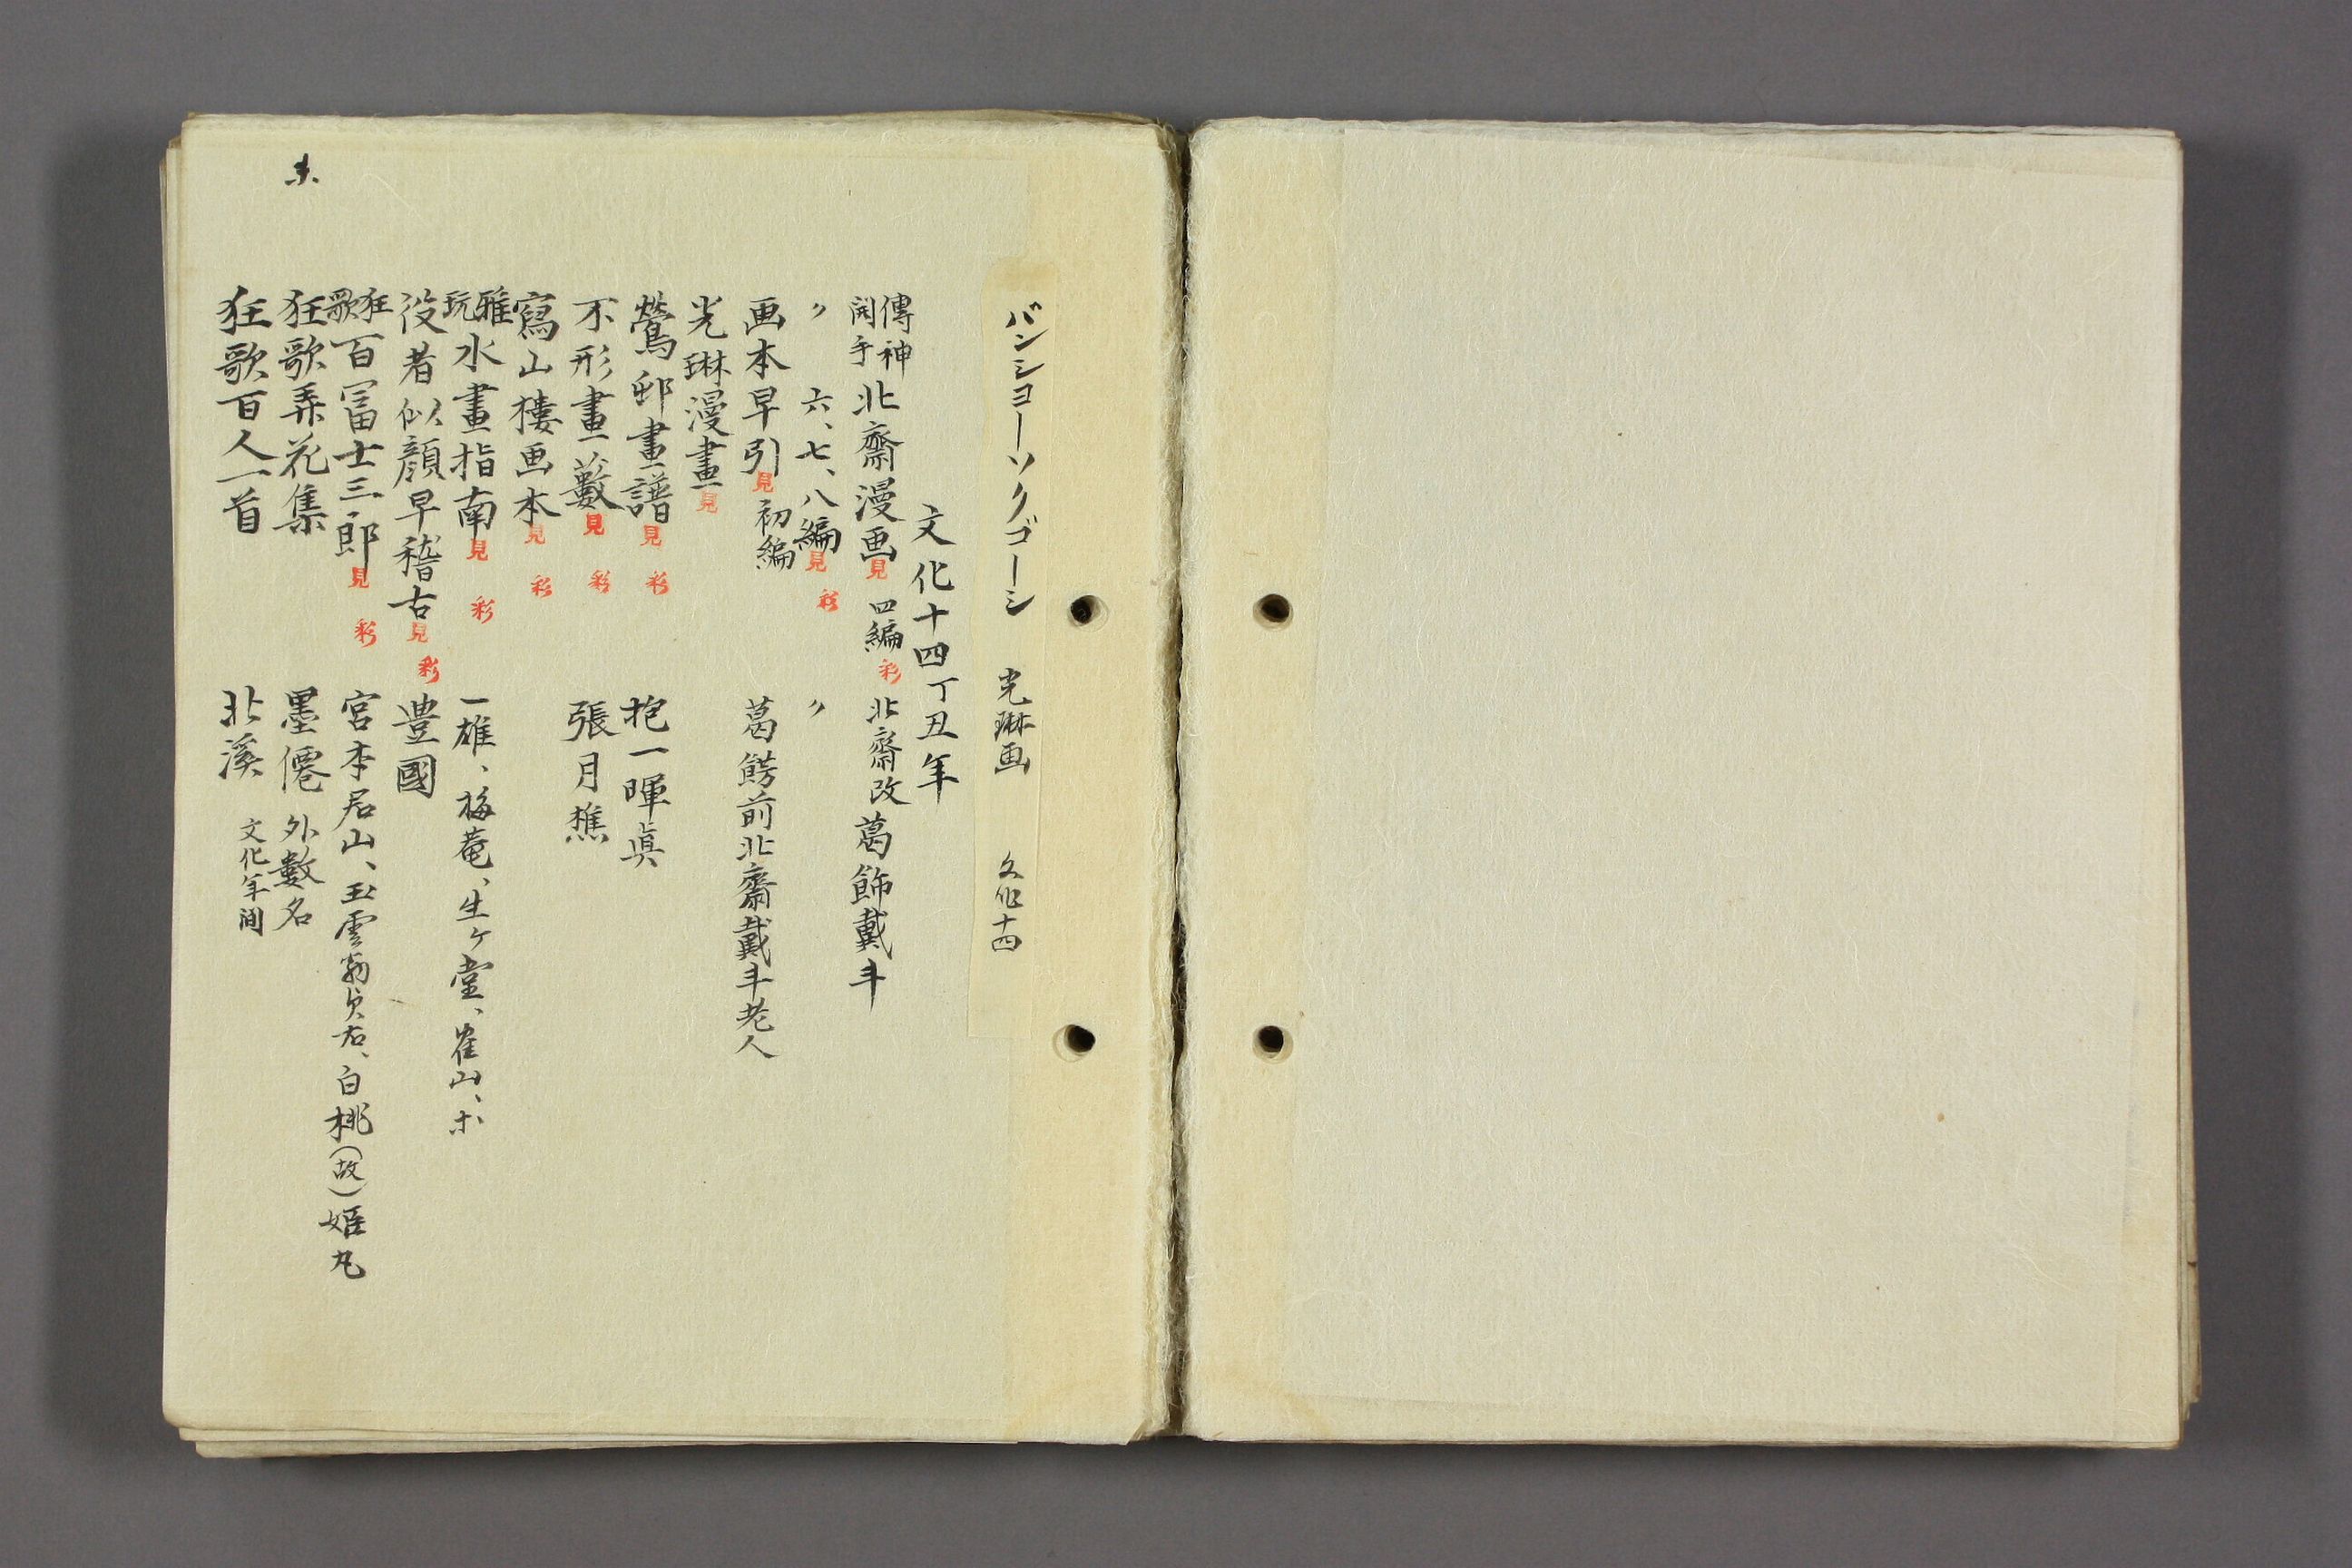 バンショーソクゴーシ　光琳画　文化十四
文化十四丁丑年
傳神開手北齋漫画見　四編彩　北齋改葛飾戴斗
〃　六、七、八編見彩　〃
画本早引見　初編　葛餝前北齋戴斗老人
光琳漫畫見
鶯邨畫譜見彩　抱一暉真
不形畫藪見彩　張月樵
寫山樓画本見彩
雅玩水畫指南見彩　一雄、梅菴、生々堂、崔山、ホ
役者似顔早稽古見彩　豊國
狂歌百冨士三郎見彩　宮本君山、玉雲、白桃(故)姫丸
狂歌弄花集　墨僊外數名
未
狂歌百人一首　北溪　文化年间